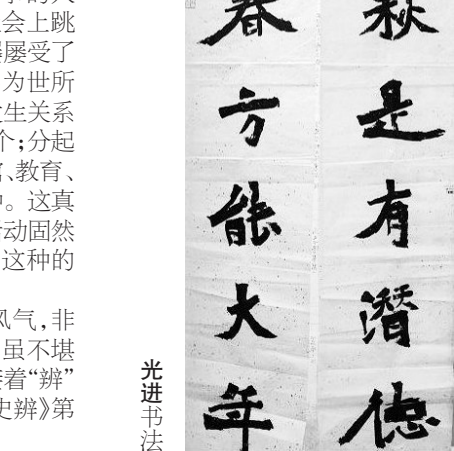 会上跳
屡受了
为世所
生关系
个;分起
、教育、
。这真
动固然
这种的
风气,非
虽不堪
着“辨”
史辨》第
光进书法
秋是有潜德
春方能大年